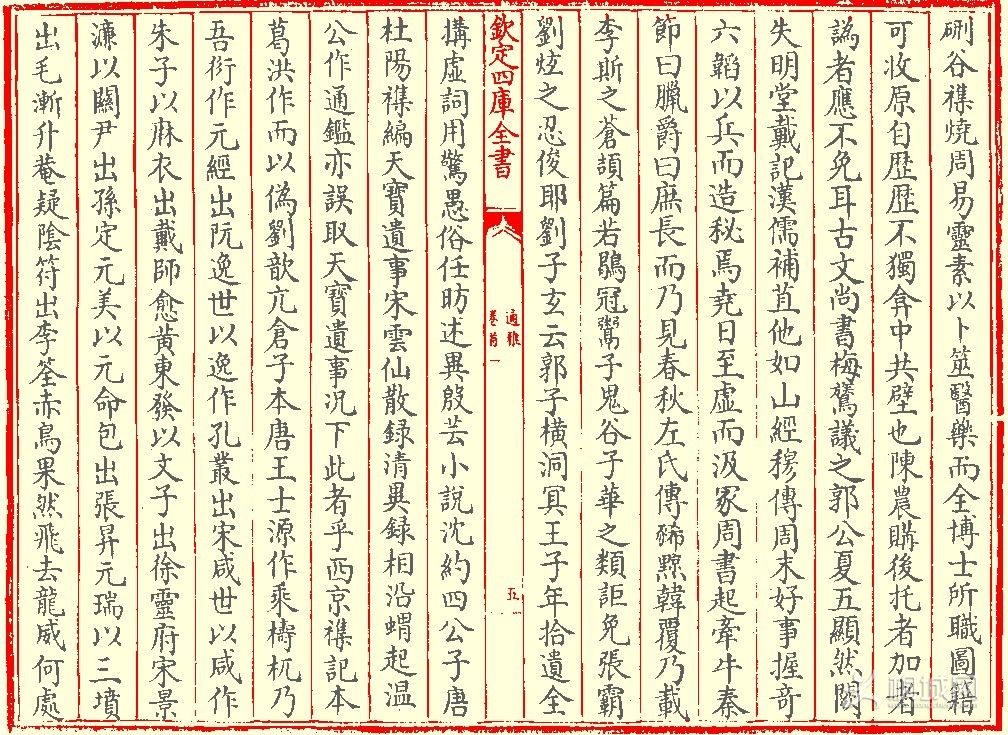 硎谷襍燒周易靈素以卜筮醫藥而全博士所職圖籍
可收原自歴歴不獨弇中共壁也陳農購後托者加者
譌者應不免耳古文尚書梅鷟議之郭公夏五顯然闕
失明堂戴記漢儒補苴他如山經穆傳周末好事握竒
六韜以兵而造秘焉堯日至虚而汲冢周書起牽牛秦
節曰臘爵曰庶長而乃見春秋左氏傳豨黥韓覆乃載
李斯之蒼頡篇若鶡冠鬻子鬼谷子華之類詎免張霸
劉炫之忍俊耶劉子玄云郭子横洞冥王子年拾遺全
欽定四庫全書
通雅
卷首一
五
搆虚詞用驚愚俗任昉述異殷芸小說沈約四公子唐
杜陽襍編天寳遺事宋雲仙散録清異録相沿蝟起温
公作通鑑亦誤取天寳遺事况下此者乎西京襍記本
葛洪作而以偽劉歆亢倉子本唐王士源作乘檮杌乃
吾衍作元經出阮逸世以逸作孔叢出宋咸世以咸作
朱子以麻衣出戴師愈黄東發以文子出徐靈府宋景
濂以關尹出孫定元美以元命包出張昇元瑞以三墳
出毛漸升菴疑陰符出李筌赤烏果然飛去龍威何處